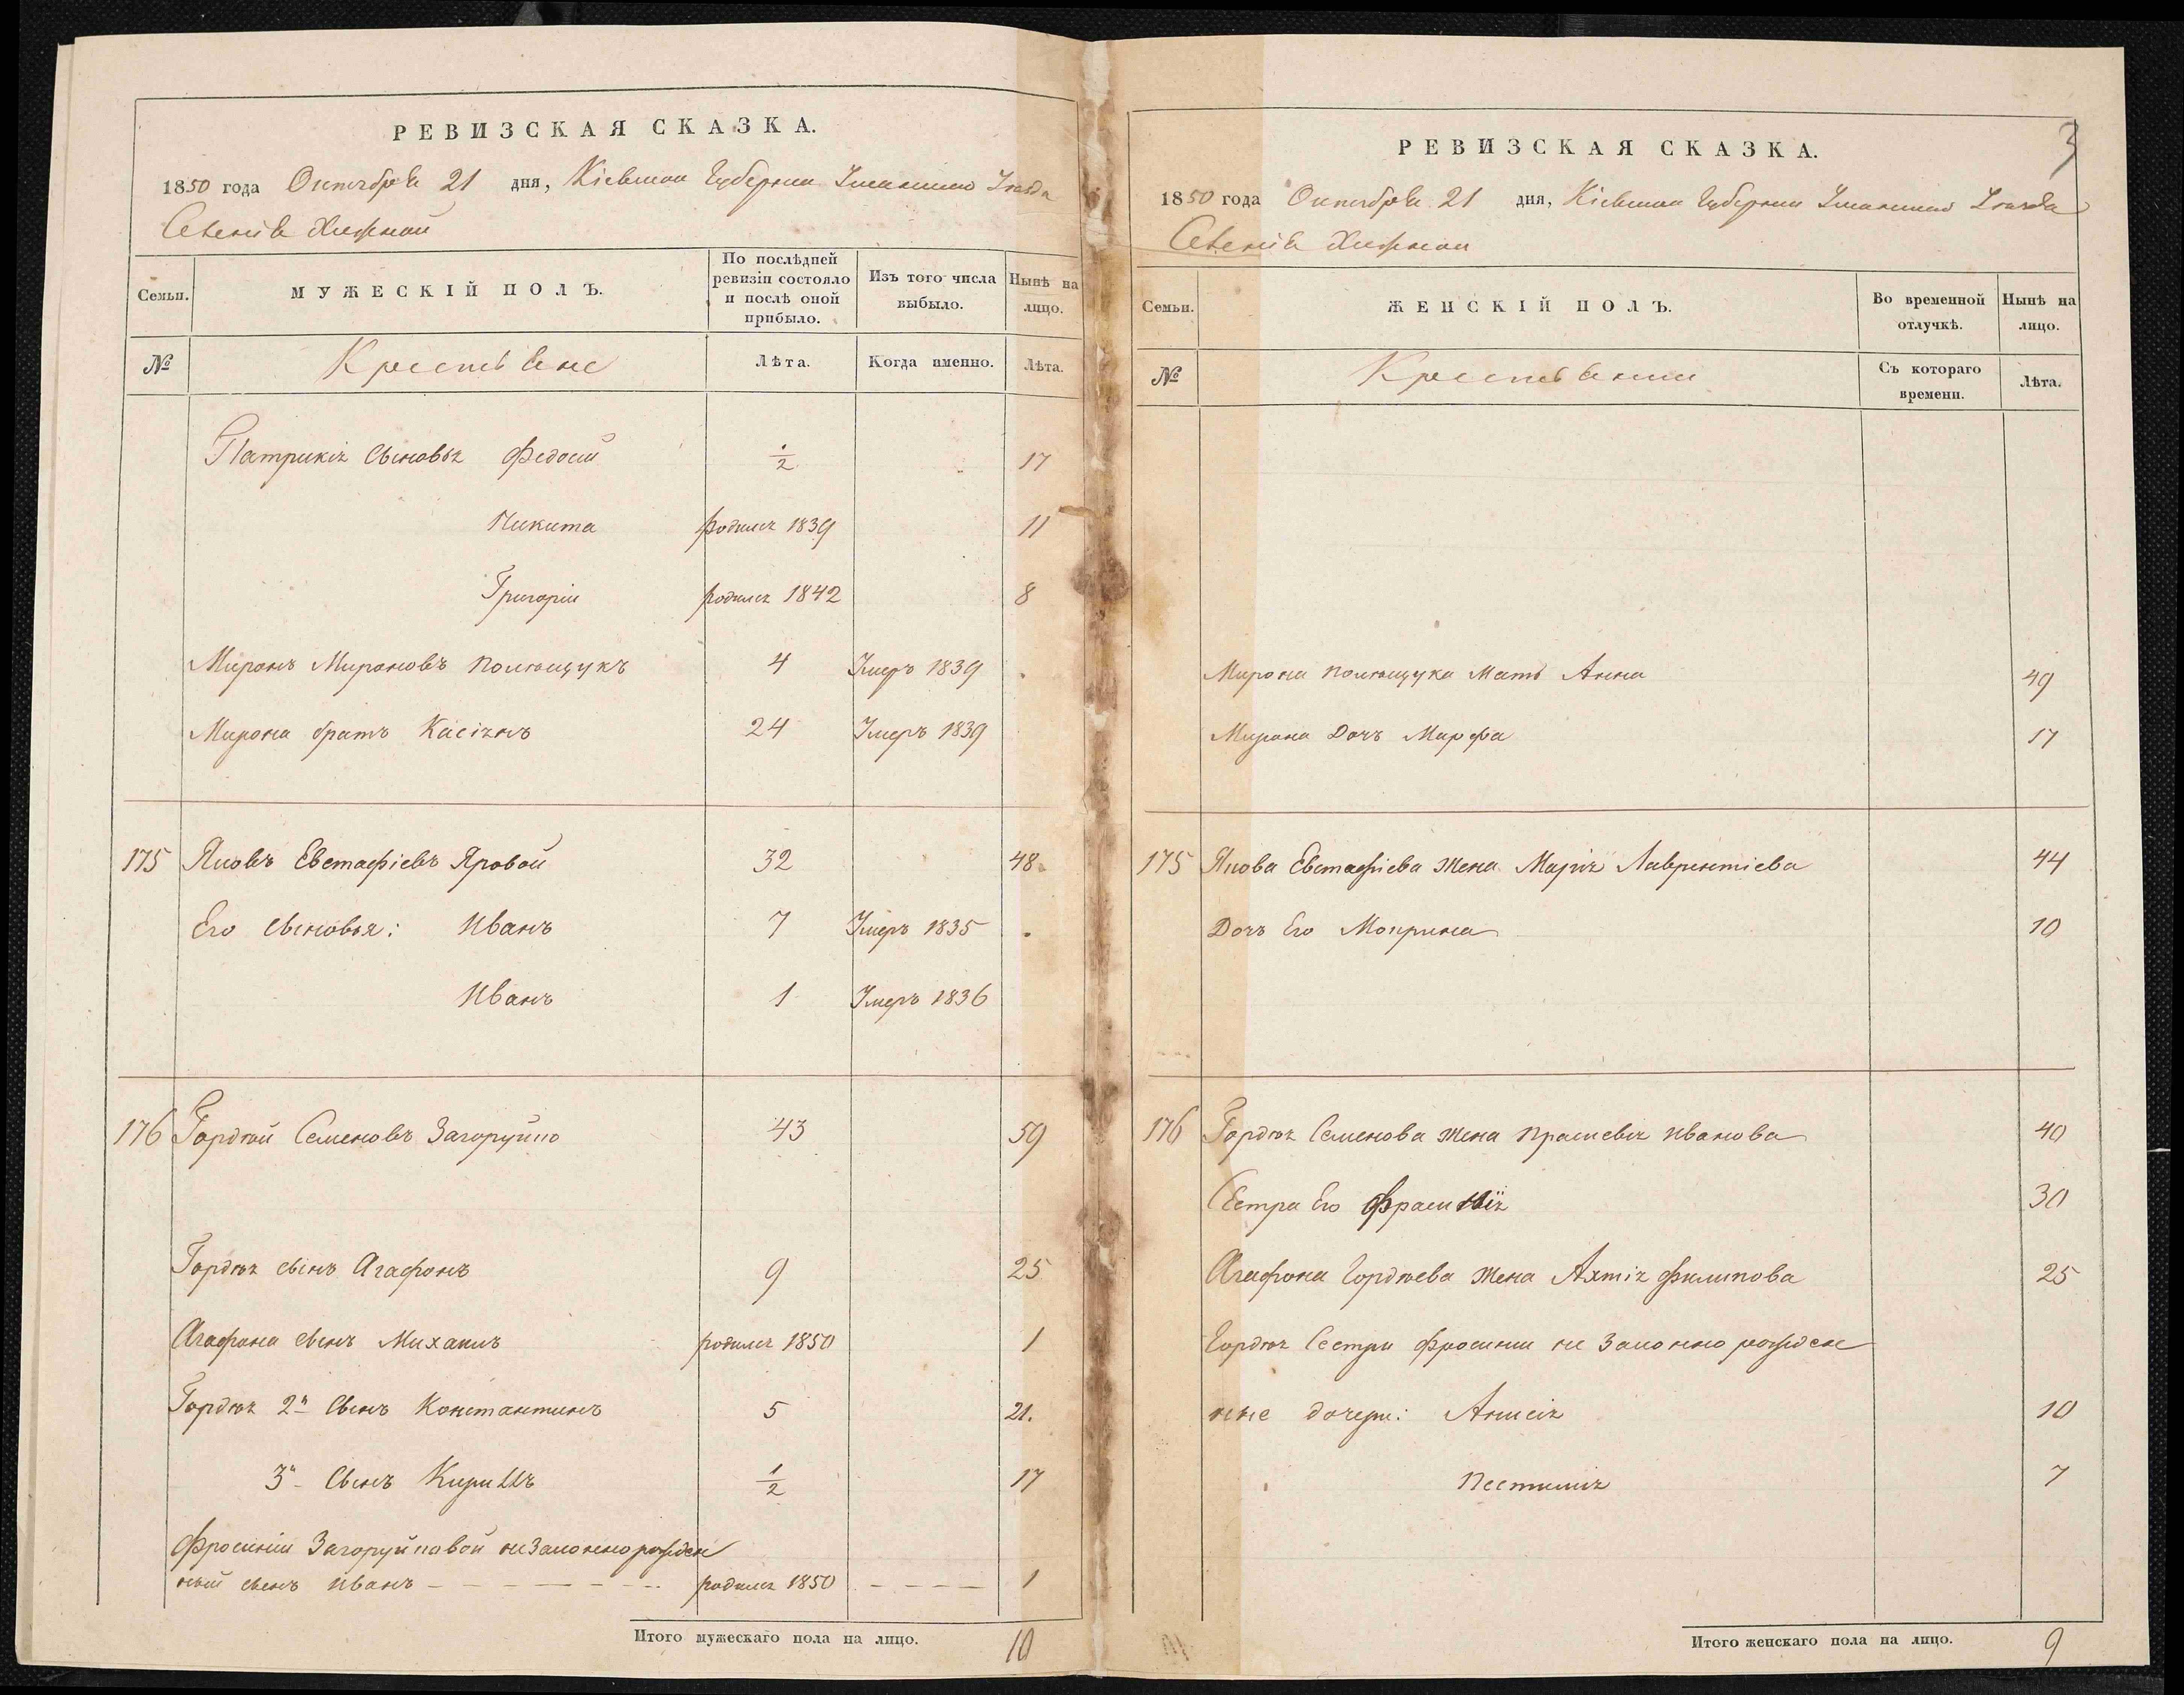 РЕВИЗСКАЯ СКАЗКА.
1850 года Октября 21 дня, Кіевской Губерніи Уманскаго Уезда
Селенія Хижной
Семьи.
МУЖЕСКІЙ ПОЛЪ.
По послѣдней ревизіи состояло и послѣ оной прибыло.
Изъ того числа выбыло.
Нынѣ на лицо.
№ Крестьяне Лѣта. Когда именно. Лѣта.
Патрикія Сыновья Федосій 1/2 17
Никита родился 1839 11
Григорій родился 1842 8
Миронъ Мироновъ Полющукъ 4 Умеръ 1839
Мирона братъ Касіянъ 24 Умеръ 1839
175 Яковъ Евстафіевъ Яровой 32 48
Его Сыновья: Иванъ 7 Умеръ 1835
Иванъ 1 Умеръ 1836
176 Гордѣй Семеновъ Загоруйко 43 59
Гордѣя сынъ Агафонъ 9 25
Агафона сынъ Михаилъ родился 1850 1
Гордѣя 2й Сынъ Константинъ 5 21.
3й Сынъ Кириллъ 1/2 17
Фросиніи Загоруйковой незаконнорожден
ный сынъ Иванъ родился 1850 1
Итого мужескаго пола на лицо. 10
3
РЕВИЗСКАЯ СКАЗКА.
1850 года Октября 21 дня, Кіевской Губерніи Уманскаго Уезда
Селенія Хижной
Семьи.
ЖЕНСКІЙ ПОЛЪ.
Во временной отлучкѣ.
Нынѣ на лицо.
№ Крестьянки Съ котораго времени. Лѣта.
Мирона Полющука Мать Анна 49
Мирона Дочъ Марфа 17
175 Якова Евстафіева Жена Марія Лаврентіева 44
Дочъ Его Мокрина 10
176 Гордѣя Семенова Жена Прасковія Иванова 40
Сестра Его Фросинія 30
Агафона Гордѣева Жена Филипова 25
Гордѣя Сестры Фросиніи не Законно рожден
ные дочери: Анисія 10
7
Итого женскаго пола на лицо. 9